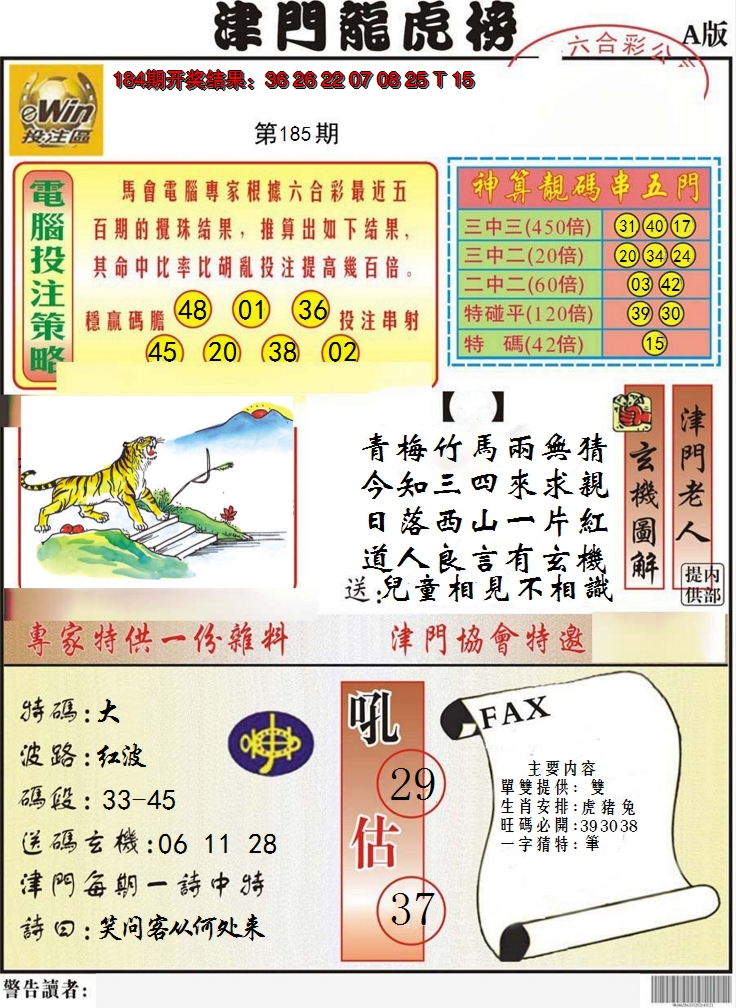 津門龍虎榜
A版
六合彩公
184期开奖结果：36 26 22 07 08 25 T 15
eWin
投注區
第185期
電腦投注策略
馬會電腦專家根據六合彩最近五
百期的攪珠结果，推算出如下结果，
其命中比率比胡亂投注提高幾百倍。
穩贏碼膽 48 01 36 投注串射
45 20 38 02
神算靚碼串五門
三中三(450倍) 31 40 17
三中二(20倍) 20 34 24
二中二(60倍) 03 42
特碰平(120倍) 39 30
特 碼(42倍) 15
【 】
青梅竹馬兩無猜
今知三四來求親
日落西山一片紅
道人良言有玄機
送:兒童相見不相識
玄機圖解
津門老人
内部提供
專家特供一份雜料
津門協會特邀
特碼:大
波路:红波
碼段:33-45
送碼玄機:06 11 28
津門每期一詩中特
詩曰:笑问客从何处来
吼
29
估
37
FAX
主要内容
單雙提供: 雙
生肖安排:虎豬兔
旺碼必開:393038
一字猜特:筆
警告讀者: